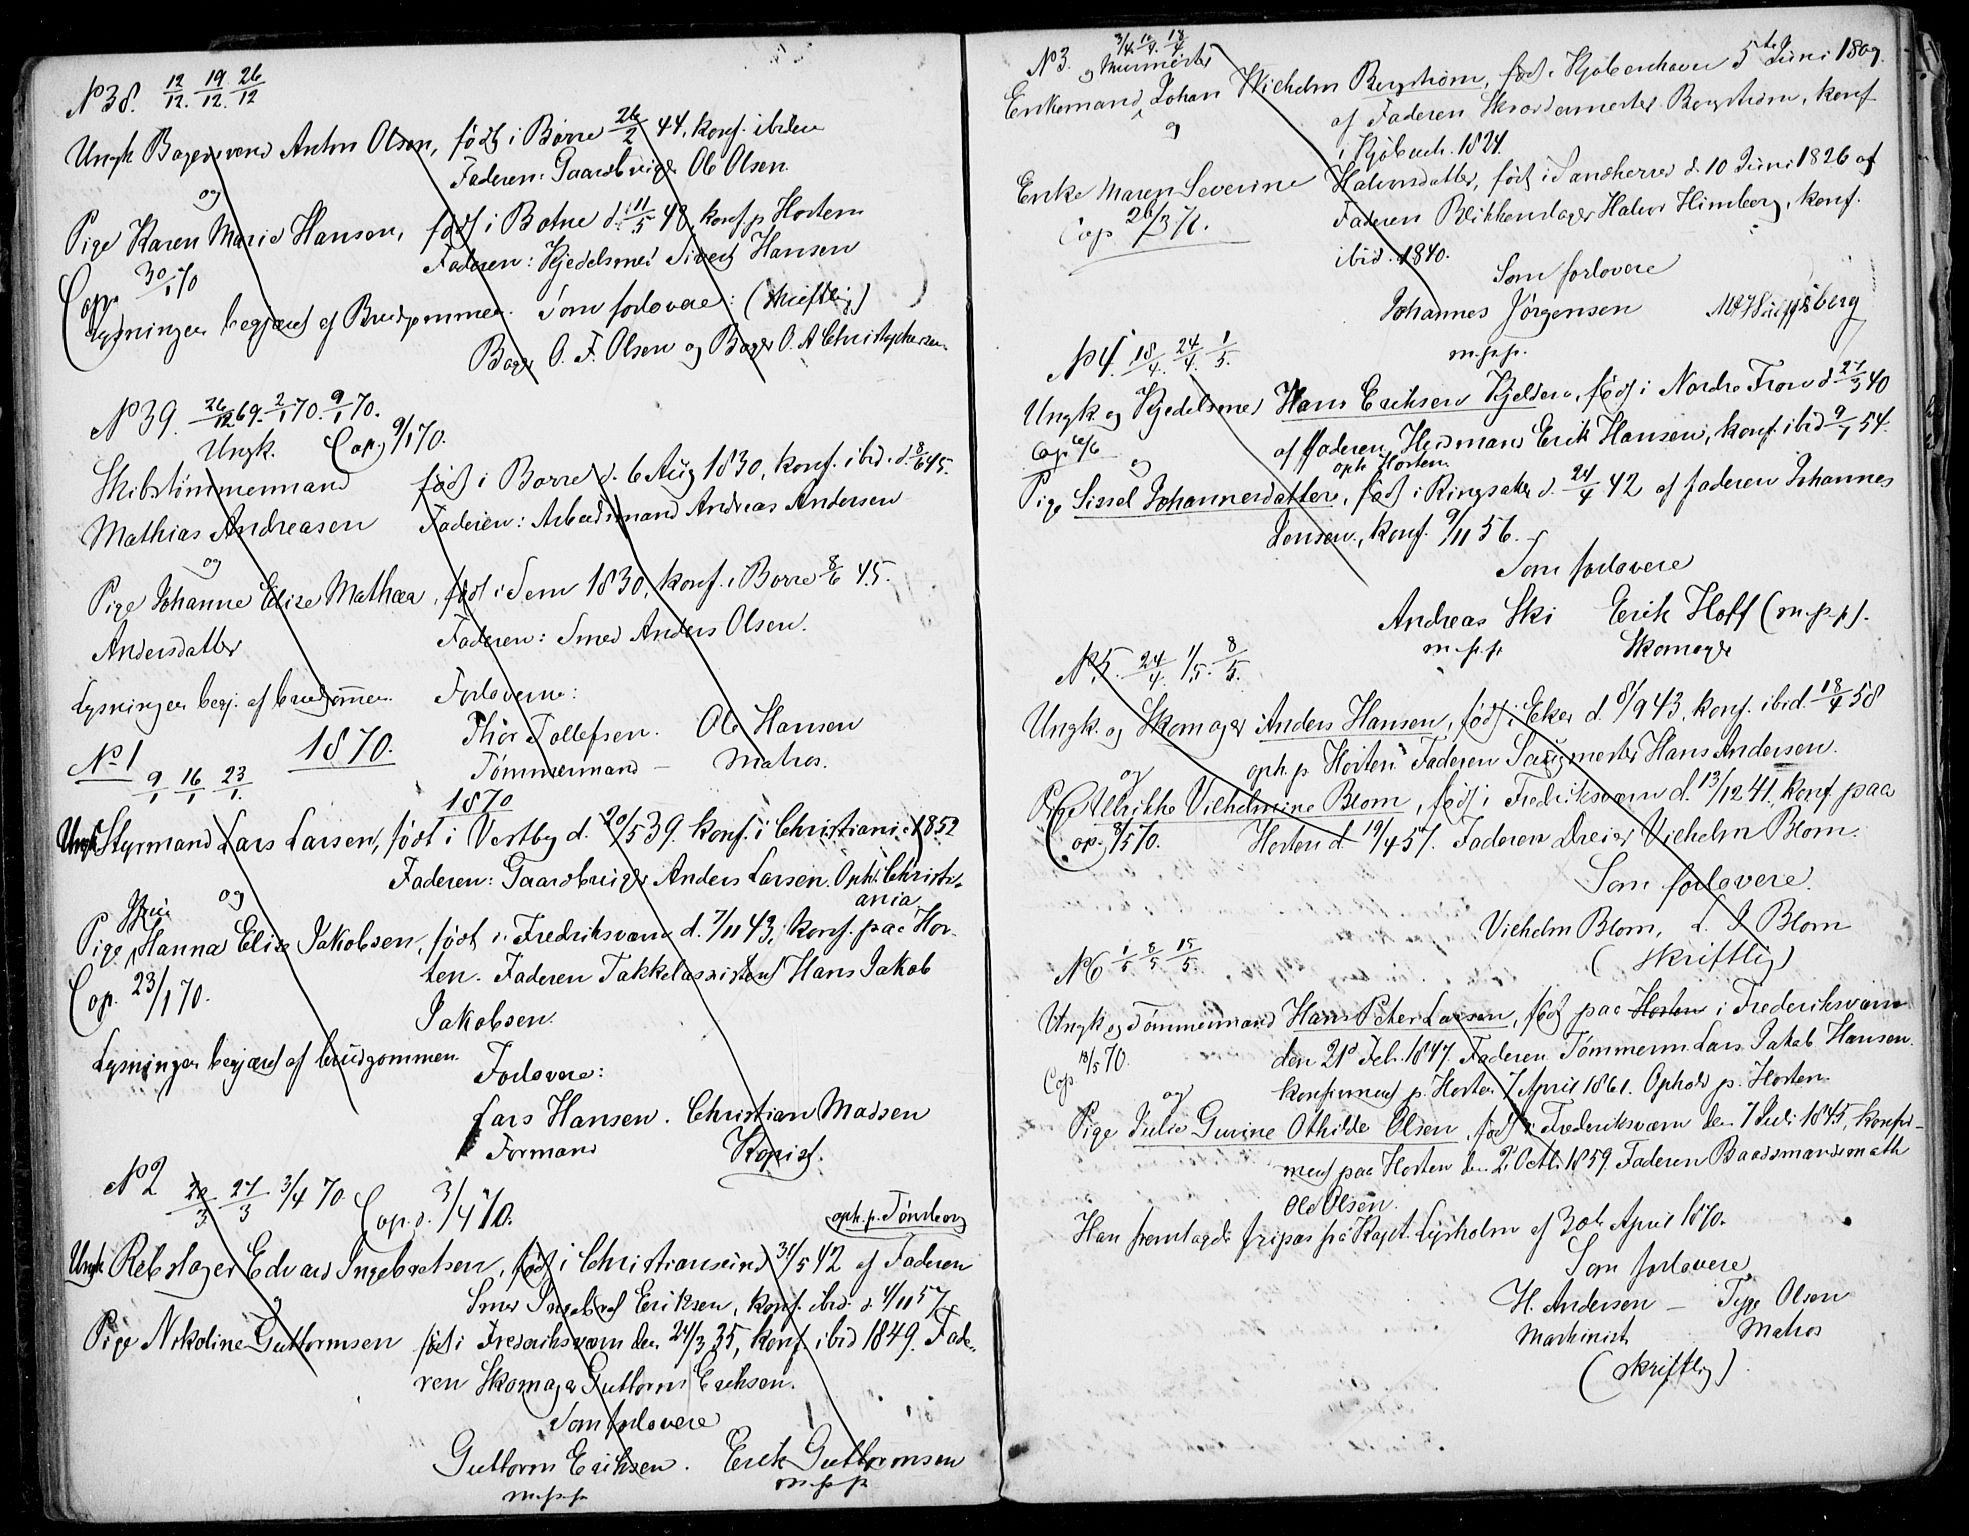 No 38. 12/12. 19/12. 26/12
Ungk Bagersvend Anton Olsen, født i Borre 26/2 44, konf. ibiden
Faderen: Gaardbruger Ole Olsen.
og
Pige Karen Marie Hansen, født i Botne d. 11/5 48, konf. p. Horten
Faderen: Kjedelsmed Sivert Hansen
Cop. 30/1 70
Lysningen begjæret af Brudgommen. Som forlovere: (skriftlig)
Bager O. F. Olsen og Bager O. A Christophersen.
No 39. 26/12 69. 2/1 70. 9/1 70.
Ungk. Cop. 9/1 70.
Skibstimmermand født i Borre d. 6 Aug 1830, konf. ibid. d. 8/6 45.
Mathias Andreasen Faderen: Arbeidsmand Andreas Andersen
og
Pige Johanne Elise Mathea, født i Sem 1830, konf. i Borre 8/6 45.
Andersdatter Faderen: Smed Anders Olsen.
Lysningen begj. af brudgommen. Forloverne:
Thor Tollefsen. Ole Hansen
Tömmermand — Matros.
No 1 1870.
9/1 16/1 23/1.
1870
Ungk Styrmand Lars Larsen, født i Vestby d. 20/5 39. konf. i Christiania 1852
Faderen: Gaardbruger Anders Larsen. Oph. i Christi-
ania
og
Pige, Hanna Elise Jakobsen, født i Fredriksværn d. 7/11 43, konf. paa Hor-
ten. Faderen Takkelassistent Hans Jakob
Cop. 23/1 70. Jakobsen.
Lysningen begjæret af brudgommen.
Forlovere:
Lars Hansen. Christian Madsen
Formand Kopist.
No 2 20/3 27/3 3/4 70. Cop. d. 3/4 70.
oph. p. Tönsberg
Ungk Rebslager Edvard Ingebretsen, født i Christianssund 31/5 42 af Faderen
Smed Ingebret Eriksen, konf. ibid. d. 4/11 57
og
Pige Nikoline Guttormsen født i Fredriksværn den 24/3 35, konf. ibid 1849. Fade-
ren Skomager Guttorm Eriksen.
Som forlovere
Guttorm Eriksen. Erik Guttormsen
m.p.p. m.p.p.
No 3. 3/4. 10/4. 18/4
og Murmester
Enkemand Johan Wilhelm Bergström, født i Kjöbenhavn 5te Juni 1809.
af Faderen Skrædermester Bergström, konf
og i Kjöbenh. 1824.
Enke Maren Severine Halvorsdatter, født i Sandherred d. 10 Juni 1826 af
Faderen Blikkenslager Halvor Himberg, konf.
Cop 26/3 71.
ibid. 1840.
Som forlovere
Johannes Jörgensen
m.p.p.
No 4. 18/4. 24/4. 1/5.
Ungk og Kjedelsmed Hans Eriksen Kjelsen, født i Nordre Fron d. 27/3 40
af faderen Husmand Erik Hansen, konf. ibid 9/7 54.
Cop 6/6 og oph Horten.
Pige Sissel Johannesdatter, født i Ringsaker d. 24/4 42 af faderen Johannes
Jensen, konf. 9/11 56.
Som forlovere
Andreas Ski Erik Hoff (m.p.p).
m.p.p. Skomager
No 5. 24/4. 1/5. 8/5.
Ungk. og Skomager Anders Hansen, født i Eker d. 8/9 43, konf. ibid. 18/4 58
og oph. p. Horten. Faderen Saugmester Hans Andersen.
Pige Ulrikke Vilhelmine Blom, født i Fredriksværn d. 13/12 41, konf paa
Cop. 8/5 70. Horten d. 19/4 57. Faderen Dreier Vilhelm Blom.
Som forlovere.
Vilhelm Blom, L. J. Blom
(skriftlig)
No 6 1/5 8/5 15/5.
Ungk og Tömmermand Hans Peter Larsen, født paa Horten i Frederiksværn
den 21d Feb. 1847. Faderen Tömmerm. Lars Jakob Hansen.
Cop. 18/5 70. konfirmeret p. Horten 7 April 1861. Ophold p. Horten
og
Pige Julie Gurine Othilde Olsen, født i Frederiksværn den 7 Juli 1845, konfir-
meret paa Horten den 2. Octb. 1859. Faderen Baadsmandsmath
Ole Olsen.
Han fremlagde fripas frå Kapt. Lyrholm af 30te April 1870.
Som forlovere
H. Andersen — Tyge Olsen
Maskinist Matros
(skriftlig)